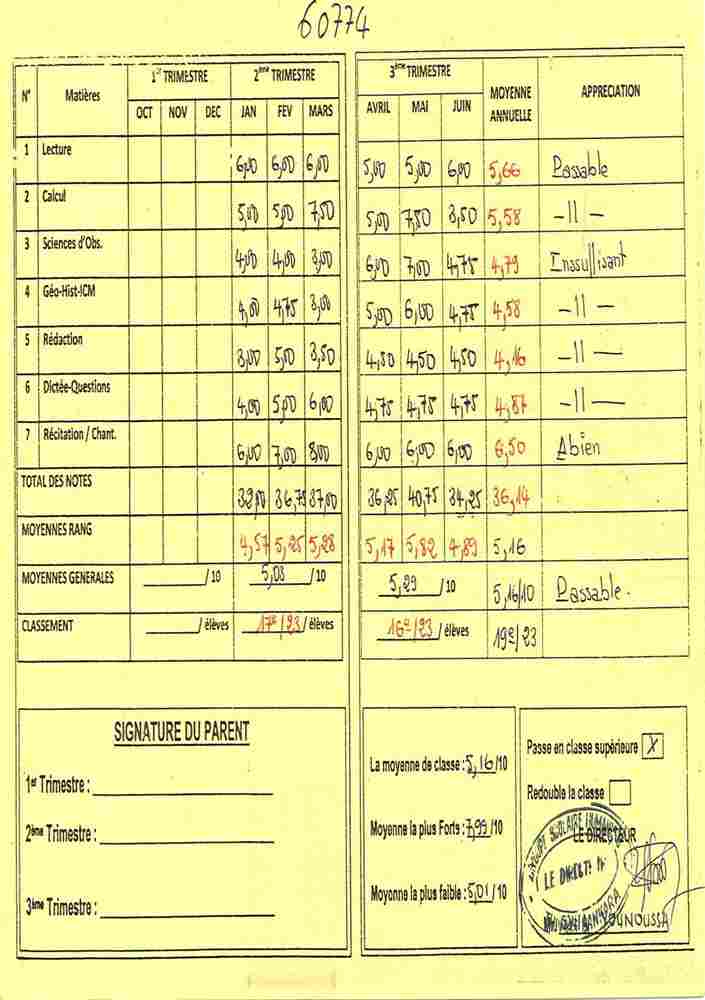 60774
N° Matières 1er TRIMESTRE 2ème TRIMESTRE 3ème TRIMESTRE MOYENNE ANNUELLE APPRECIATION
OCT NOV DEC JAN FEV MARS AVRIL MAI JUIN
1 Lecture 6,00 6,00 6,00 5,00 5,00 6,00 5,66 Passable
2 Calcul 5,00 5,00 7,50 5,00 7,50 3,50 5,58 -11-
3 Sciences d'Obs. 4,00 4,00 3,00 6,00 7,00 4,75 4,79 Inssuffisant
4 Géo-Hist-ICM 4,00 4,75 3,00 5,00 6,00 4,75 4,58 -11-
5 Rédaction 3,00 5,00 3,50 4,50 4,50 4,50 4,16 -11-
6 Dictée-Questions 4,00 5,00 6,00 4,75 4,75 4,75 4,87 -11-
7 Récitation / Chant. 6,00 7,00 8,00 6,00 6,00 6,00 6,50 Abien
TOTAL DES NOTES 32,00 36,75 37,00 36,25 40,75 34,25 36,14
MOYENNES RANG 4,57 5,25 5,28 5,17 5,82 4,89 5,16
MOYENNES GENERALES ______/ 10 5,03 / 10 5,29 / 10 5,16/10 Passable.
CLASSEMENT ______/ élèves 17e/23 / élèves 16e/23 / élèves 19e/23
SIGNATURE DU PARENT
1er Trimestre : ______
2ème Trimestre : ______
3ème Trimestre : ______
La moyenne de classe : 5,16/10
Moyenne la plus Forts : 7,99 /10
Moyenne la plus faible : 5,01 / 10
Passe en classe supérieure X
Redouble la classe
LE DIRECTEUR
LE DIRECT
YOUNOUSSA